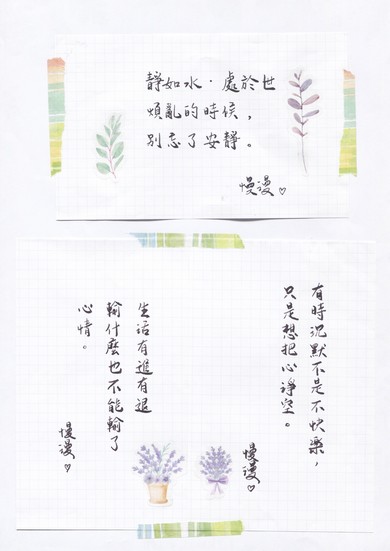 靜如水·處於世
煩亂的時候，
別忘了安靜。
慢漫♡
有時沉默不是不快樂，
只是想把心淨空。
慢漫♡
生活有進有退
輸什麼也不能輸了
心情。
慢漫♡